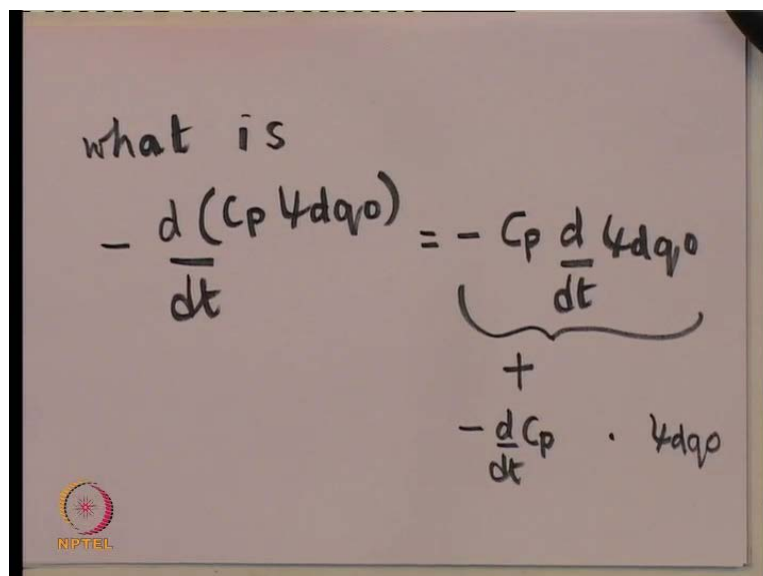 what is
- d/dt (Cp ψdq0) = - Cp d/dt ψdq0
+
- d/dt Cp . ψdq0
NPTEL